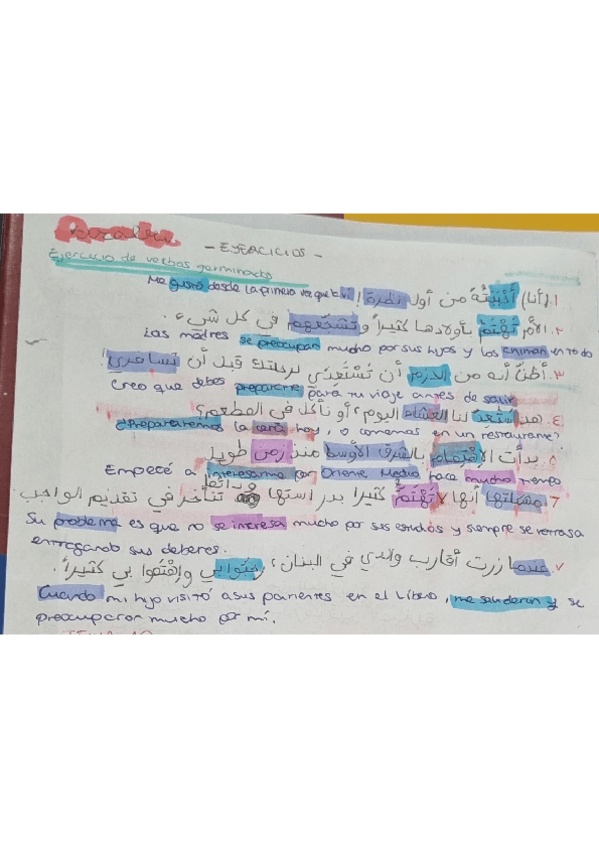 - EJERCICIOS -
Ejercicio de verbos germinado
١. (أنا) أحْبَبْتُهُ من أول نظرة!
Me gustó desde la primera vez que
٢. الأم تَهْتَمّ بأولادها كثيراً وتشجّعهم في كل شيء.
Las madres se preocupan mucho por sus hijos y los animan en todo
٣. أظنّ أنه من اللازم أن تَسْتَعِدّي لرحلتك قبل أن تسافري.
Creo que debes prepararte para tu viaje antes de salir
٤. هل سَتُعِدّ لنا العشاء اليوم، أو نأكل في المطعم؟
¿Prepararemos la cena hoy, o comemos en un restaurante?
٥. بدأت الاهتمام بالشرق الأوسط منذ زمن طويل
Empecé a interesarme por Oriente Medio hace mucho tiempo
٦ مشكلتها أنها لا تَهْتَمّ كثيرا بدراستها ودائما تتأخر في تقديم الواجب
Su problema es que no se interesa mucho por sus estudios y siempre se retrasa
entregando sus deberes.
٧. عندما زرت أقارب والدي في البنان، رحّبوا بي وإهْتَمّوا بي كثيراً.
Cuando mi hijo visitó a sus parientes en el Líbno, me saludaron y se
preocuparon mucho por mí.